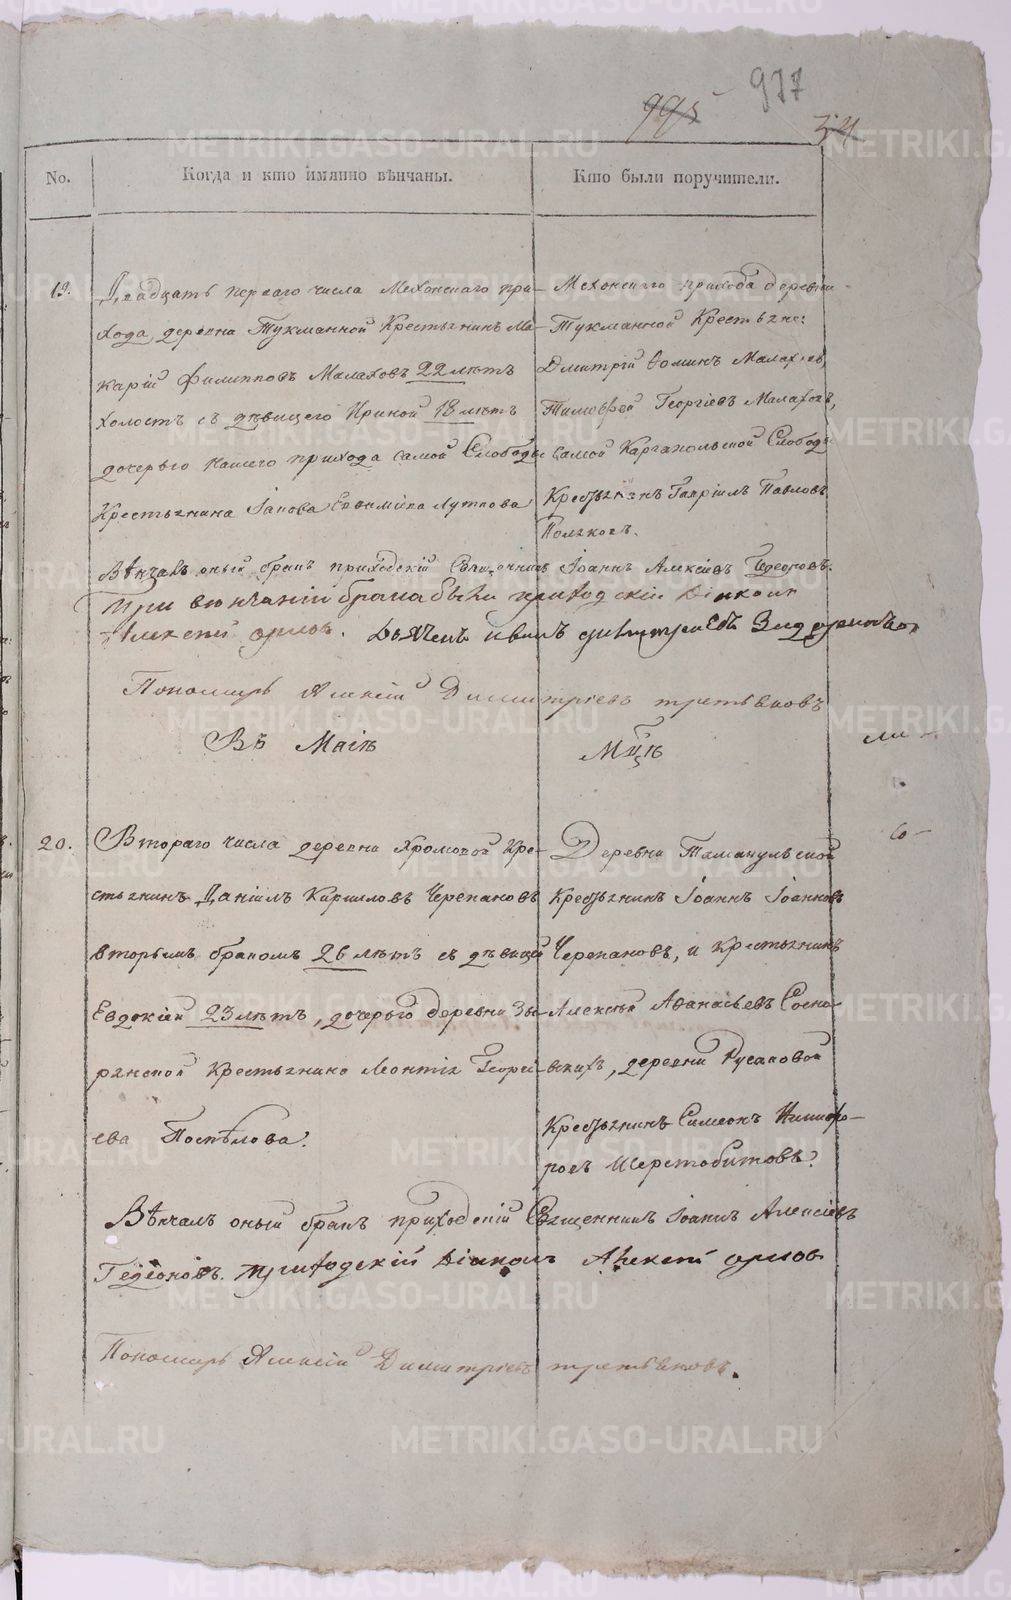 977
995
34
No.
Когда и кто имянно вѣнчаны.
Кто были поручители.
19.
Двадцать перваго числа Мехонскаго при-
хода, деревни Тукманной Крестьянинъ Ма-
карій Филипповъ Малаховъ 22 лѣтъ
холостъ съ дѣвицею Ириной 18 лѣтъ
дочерью нашего прихода самой Слободы
Крестьянина Іакова Евѳиміева Луткова
Мехонскаго прихода деревни
Тукманной Крестьяне:
Дмитрій Ѳоминъ Малаховъ,
Тимоѳей Георгіевъ Малаховъ,
самой Каргапольской Слободы
Крестьянинъ Гавріилъ Павловъ
Вѣнчалъ оный бракъ приходскій Священникъ Іоаннъ Алексіевъ Гедеоновъ.
При венчаніи брака были приходскій Діаконъ
Алексей орлов. Дьячекъ иванъ
Пономарь Алексій Димитріевъ третьяковъ
Въ Маіѣ
Мцѣ
20.
Втораго числа деревни Храмовой Кре-
стьянинъ Даніилъ Кирилловъ Черепановъ
вторымъ бракомъ 26 лѣтъ съ дѣвицей
Евдокіей 23 лѣтъ, дочерью деревни Зы-
рянской Крестьянина Леонтія Георгі-
ева Поспѣлова.
Деревни Тамакульской
Крестьянинъ Іоаннъ Іоанновъ
Черепановъ, и Крестьянинъ
Алексѣй Аѳанасьевъ Сосно-
вскихъ, деревни Русаковой
Крестьянинъ Симеонъ Никифо-
ровъ Шерстобитовъ.
Вѣнчалъ оный бракъ приходскій Священникъ Іоаннъ Алексіевъ
Гедеоновъ. приходскій Діаконъ Алексей орлов
Пономарь Алексій Димитріевъ третьяковъ.
METRIKI.GASO-URAL.RU